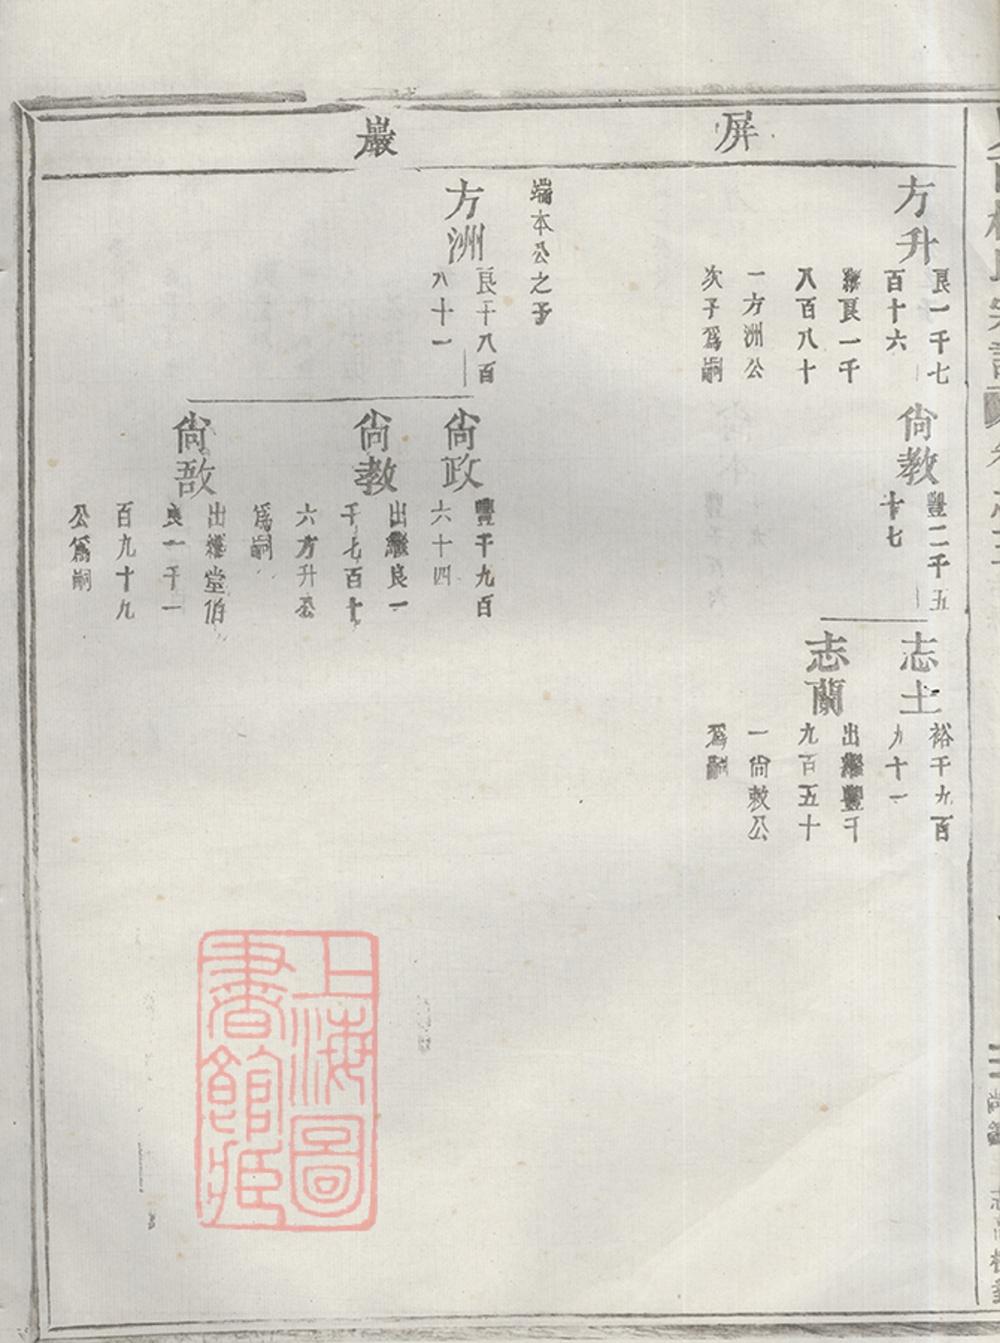 屏
巖
方升
良一千七
百十六
繼良一千
八百八十
一方洲公
次子爲嗣
尙教
豐二千五
十七
志士
裕千九百
九十一
志蘭
出繼豐千
九百五十
一尙敕公
爲嗣
端本公之子
方洲
良千八百
八十一
尙政
豐千九百
六十四
尙教
出繼良一
千七百十
六方升公
爲嗣
尙敔
出繼堂伯
良一千一
百九十九
公爲嗣
上海圖
書館藏